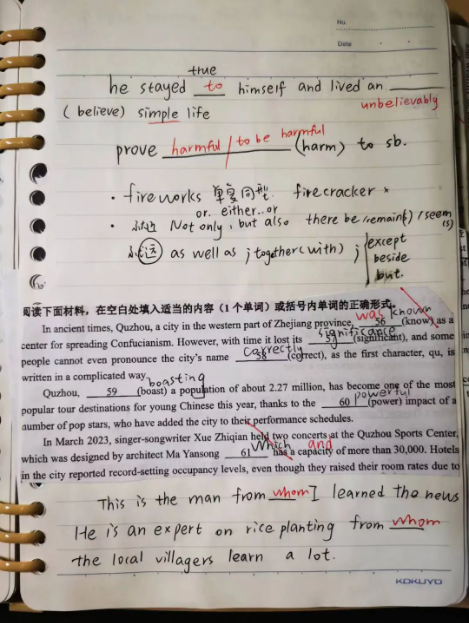 No.
Date
true
he stayed to himself and lived an ________
(believe) simple life unbelievably
prove harmful / to be harmful (harm) to sb.
· fireworks 单复同型. firecracker
or. either..or
· 就近 Not only, but also there be / remain(s) / seem(s)
就远 as well as ; together (with) ; except
beside
but.
阅读下面材料，在空白处填入适当的内容（1 个单词）或括号内单词的正确形式。
was known
In ancient times, Quzhou, a city in the western part of Zhejiang province, 56 (know) as a
significance
center for spreading Confucianism. However, with time it lost its 57 (significant), and some
correctly
people cannot even pronounce the city's name 58 (correct), as the first character, qu, is
written in a complicated way.
boasting
powerful
Quzhou, 59 (boast) a population of about 2.27 million, has become one of the most
popular tour destinations for young Chinese this year, thanks to the 60 (power) impact of a
number of pop stars, who have added the city to their performance schedules.
In March 2023, singer-songwriter Xue Zhiqian held two concerts at the Quzhou Sports Center,
Which and
which was designed by architect Ma Yansong 61 has a capacity of more than 30,000. Hotels
in the city reported record-setting occupancy levels, even though they raised their room rates due to
This is the man from whom I learned the news
He is an expert on rice planting from whom
the local villagers learn a lot.
KOKUYO